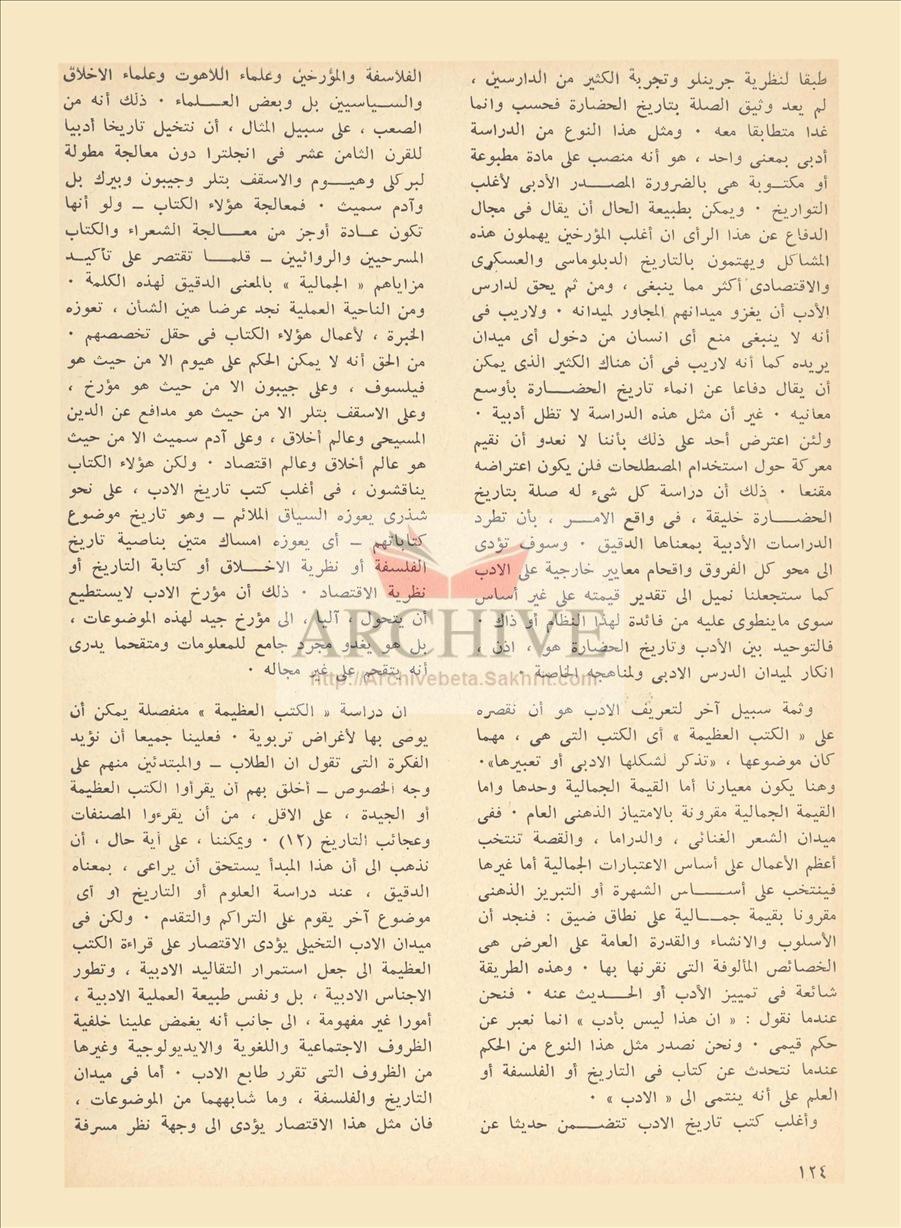 طبقا لنظرية جرينلو وتجربة الكثير من الدارسين ،
لم يعد وثيق الصلة بتاريخ الحضارة فحسب وانما
غدا متطابقا معه ٠ ومثل هذا النوع من الدراسة
أدبى بمعنى واحد ، هو أنه منصب على مادة مطبوعة
أو مكتـوبة هى بالضرورة المصـــدر الأدبى لأغلب
التواريخ ٠ ويمكن بطبيعة الحال أن يقال فى مجال
الدفاع عن هذا الرأى ان أغلب المؤرخين يهملون هذه
المشاكل ويهتمون بالتاريخ الدبلوماسى والعسكرى
والاقتصادى أكثر مما ينبغى ، ومن ثم يحق لدارس
الأدب أن يغزو ميدانهم المجاور لميدانه ٠ ولاريب فى
أنه لا ينبغى منع أى انسان من دخول أى ميدان
يريده كما أنه لاريب فى أن هناك الكثير الذى يمكن
أن يقال دفاعا عن انماء تاريخ الحضـــارة بأوسع
معانيه ٠ غير أن مثل هذه الدراسة لا تظل أدبية ٠
ولئن اعترض أحد على ذلك بأننا لا نعدو أن نقيم
معركة حول استخدام المصطلحات فلن يكون اعتراضه
مقنعا ٠ ذلك أن دراسة كل شىء له صلة بتاريخ
الحضـــارة خليقة ، فى واقع الامـــر ، بأن تطرد
الدراسات الأدبية بمعناها الدقيق ٠ وسوف تؤدى
الى محو كل الفروق واقحام معايير خارجية على الادب
كما ستجعلنا نميل الى تقدير قيمته على غير أساس
سوى ماينطوى عليه من فائدة لهذا النظام أو ذاك ٠
فالتوحيد بين الأدب وتاريخ الحضارة هو ، اذن ،
انكار لميدان الدرس الادبى ولمناهجه الخاصة ٠
وثمة سبيل آخر لتعريف الادب هو أن نقصره
على « الكتب العظيمة » أى الكتب التى هى ، مهما
كان موضوعها ، «تذكر لشكلها الادبى أو تعبيرها»٠
وهنا يكون معيارنا أما القيمة الجمالية وحدها واما
القيمة الجمالية مقرونة بالامتياز الذهنى العام ٠ ففى
ميدان الشعر الغنائى ، والدراما ، والقصة تنتخب
أعظم الأعمال على أساس الاعتبارات الجمالية أما غيرها
فينتخب على أســـاس الشهرة أو التبريز الذهنى
مقرونا بقيمة جمـــالية على نطاق ضيق : فنجد أن
الأسلوب والانشاء والقدرة العامة على العرض هى
الخصائص المألوفة التى نقرنها بها ٠ وهذه الطريقة
شائعة فى تمييز الأدب أو الحـــديث عنه ٠ فنحن
عندما نقول : « ان هذا ليس بأدب » انما نعبر عن
حكم قيمى ٠ ونحن نصدر مثل هذا النوع من الحكم
عندما نتحدث عن كتاب فى التاريخ أو الفلسفة أو
العلم على أنه ينتمى الى « الادب » ٠
وأغلب كتب تاريخ الادب تتضـــمن حديثا عن
الفلاسفة والمؤرخين وعلماء اللاهوت وعلماء الاخلاق
والسـياسيين بل وبعض العـــلماء ٠ ذلك أنه من
الصعب ، على سبيل المثال ، أن نتخيل تاريخا أدبيا
للقرن الثامن عشر فى انجلترا دون معالجة مطولة
لبركلى وهيـــوم والاسقف بتلر وجيبون وبيرك بل
وآدم سميث ٠ فمعالجة هؤلاء الكتاب ــ ولو أنها
تكون عـادة أوجز من معـــالجة الشعراء والكتاب
المسرحيين والروائيين ــ قلمـــا تقتصر على تأكيــد
مزاياهم « الجمالية » بالمعنى الدقيق لهذه الكلمة ٠
ومن الناحية العملية نجد عرضا هين الشأن ، تعوزه
الخبرة ، لأعمال هؤلاء الكتاب فى حقل تخصصهم ٠
من الحق أنه لا يمكن الحكم على هيوم الا من حيث هو
فيلسوف ، وعلى جيبون الا من حيث هو مؤرخ ،
وعلى الاسقف بتلر الا من حيث هو مدافع عن الدين
المسيحى وعالم أخلاق ، وعلى آدم سميث الا من حيث
هو عالم أخلاق وعالم اقتصاد ٠ ولكن هؤلاء الكتاب
يناقشون ، فى أغلب كتب تاريخ الادب ، على نحو
شذرى يعوزه السياق الملائم ــ وهو تاريخ موضوع
كتاباتهم ــ أى يعوزه امساك متين بناصية تاريخ
الفلسفة أو نظرية الاخـــلاق أو كتابة التاريخ أو
نظرية الاقتصاد ٠ ذلك أن مؤرخ الادب لايستطيع
أن يتحول ، آليا ، الى مؤرخ جيد لهذه الموضوعات ،
بل هو يغدو مجرد جامع للمعلومات ومتقحما يدرى
أنه يتقحم على غير مجاله ٠
ان دراسة « الكتب العظيمة » منفصلة يمكن أن
يوصى بها لأغراض تربوية ٠ فعلينا جميعا أن نؤيد
الفكرة التى تقول ان الطلاب ــ والمبتدئين منهم على
وجه الخصوص ــ أخلق بهم أن يقرأوا الكتب العظيمة
أو الجيدة ، على الاقل ، من أن يقرءوا المصنفات
وعجائب التاريخ (١٢) ٠ ويمكننا ، على أية حال ، أن
نذهب الى أن هذا المبدأ يستحق أن يراعى ، بمعناه
الدقيق ، عند دراسة العلوم أو التاريخ او أى
موضوع آخر يقوم على التراكم والتقدم ٠ ولكن فى
ميدان الادب التخيلى يؤدى الاقتصار على قراءة الكتب
العظيمة الى جعل استمرار التقاليد الادبية ، وتطور
الاجناس الادبية ، بل ونفس طبيعة العملية الادبية ،
أمورا غير مفهومة ، الى جانب أنه يغمض علينا خلفية
الظروف الاجتماعية واللغوية والايديولوجية وغيرها
من الظروف التى تقرر طابع الادب ٠ أما فى ميدان
التاريخ والفلسفة ، وما شابههما من الموضوعات ،
فان مثل هذا الاقتصار يؤدى الى وجهة نظر مسرفة
١٢٤
ARCHIVE
http://Archivebeta.Sakhrit.com